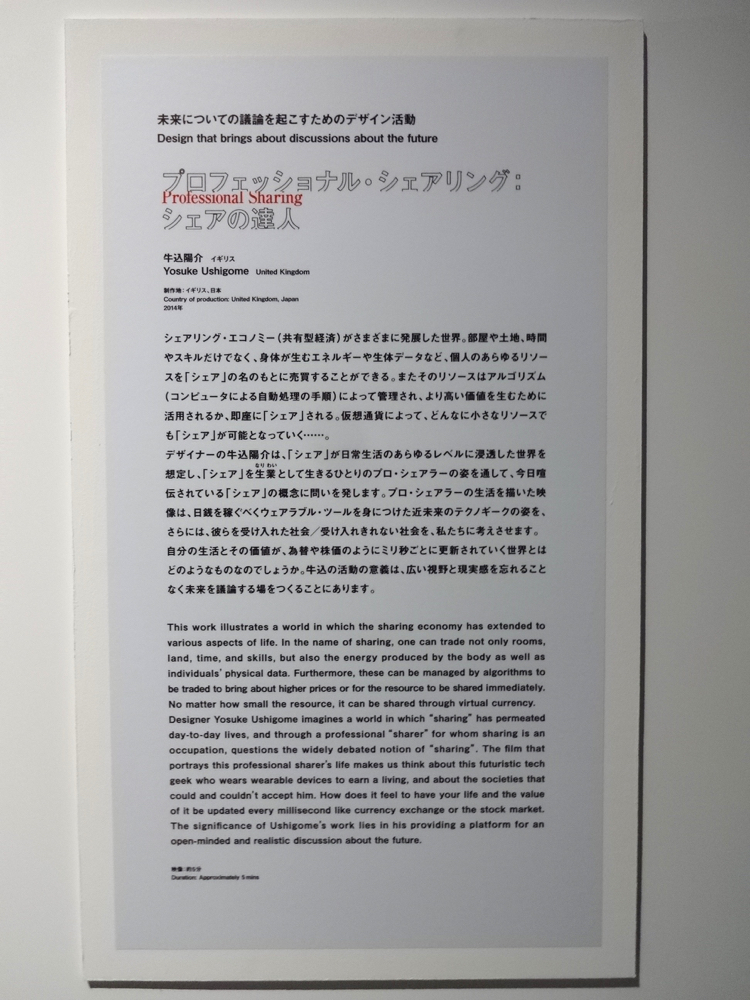 未来についての議論を起こすためのデザイン活動
Design that brings about discussions about the future
プロフェッショナル・シェアリング：
Professional Sharing
シェアの達人
牛込陽介 イギリス
Yosuke Ushigome United Kingdom
制作地：イギリス、日本
Country of production: United Kingdom, Japan
2014年
シェアリング・エコノミー（共有型経済）がさまざまに発展した世界。部屋や土地、時間
やスキルだけでなく、身体が生むエネルギーや生体データなど、個人のあらゆるリソー
スを「シェア」の名のもとに売買することができる。またそのリソースはアルゴリズム
（コンピュータによる自動処理の手順）によって管理され、より高い価値を生むために
活用されるか、即座に「シェア」される。仮想通貨によって、どんなに小さなリソースで
も「シェア」が可能となっていく……。
デザイナーの牛込陽介は、「シェア」が日常生活のあらゆるレベルに浸透した世界を
なりわい
想定し、「シェア」を生業として生きるひとりのプロ・シェアラーの姿を通して、今日喧
伝されている「シェア」の概念に問いを発します。プロ・シェアラーの生活を描いた映
像は、日銭を稼ぐべくウェアラブル・ツールを身につけた近未来のテクノギークの姿を、
さらには、彼らを受け入れた社会／受け入れきれない社会を、私たちに考えさせます。
自分の生活とその価値が、為替や株価のようにミリ秒ごとに更新されていく世界とは
どのようなものなのでしょうか。牛込の活動の意義は、広い視野と現実感を忘れること
なく未来を議論する場をつくることにあります。
This work illustrates a world in which the sharing economy has extended to
various aspects of life. In the name of sharing, one can trade not only rooms,
land, time, and skills, but also the energy produced by the body as well as
individuals' physical data. Furthermore, these can be managed by algorithms to
be traded to bring about higher prices or for the resource to be shared immediately.
No matter how small the resource, it can be shared through virtual currency.
Designer Yosuke Ushigome imagines a world in which "sharing" has permeated
day-to-day lives, and through a professional "sharer" for whom sharing is an
occupation, questions the widely debated notion of "sharing". The film that
portrays this professional sharer's life makes us think about this futuristic tech
geek who wears wearable devices to earn a living, and about the societies that
could and couldn't accept him. How does it feel to have your life and the value
of it be updated every millisecond like currency exchange or the stock market.
The significance of Ushigome's work lies in his providing a platform for an
open-minded and realistic discussion about the future.
映像：約5分
Duration: Approximately 5 mins